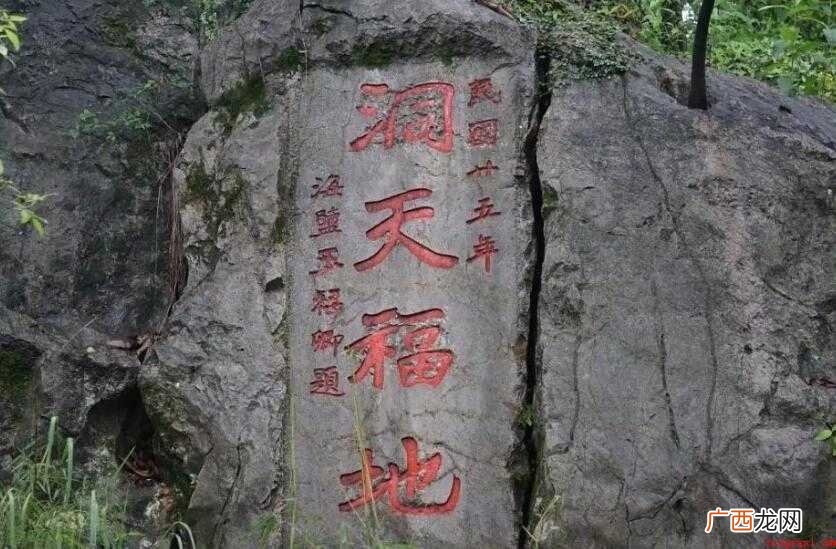 民國廿五年
洞天福地
海鹽 卿題
广西龙网